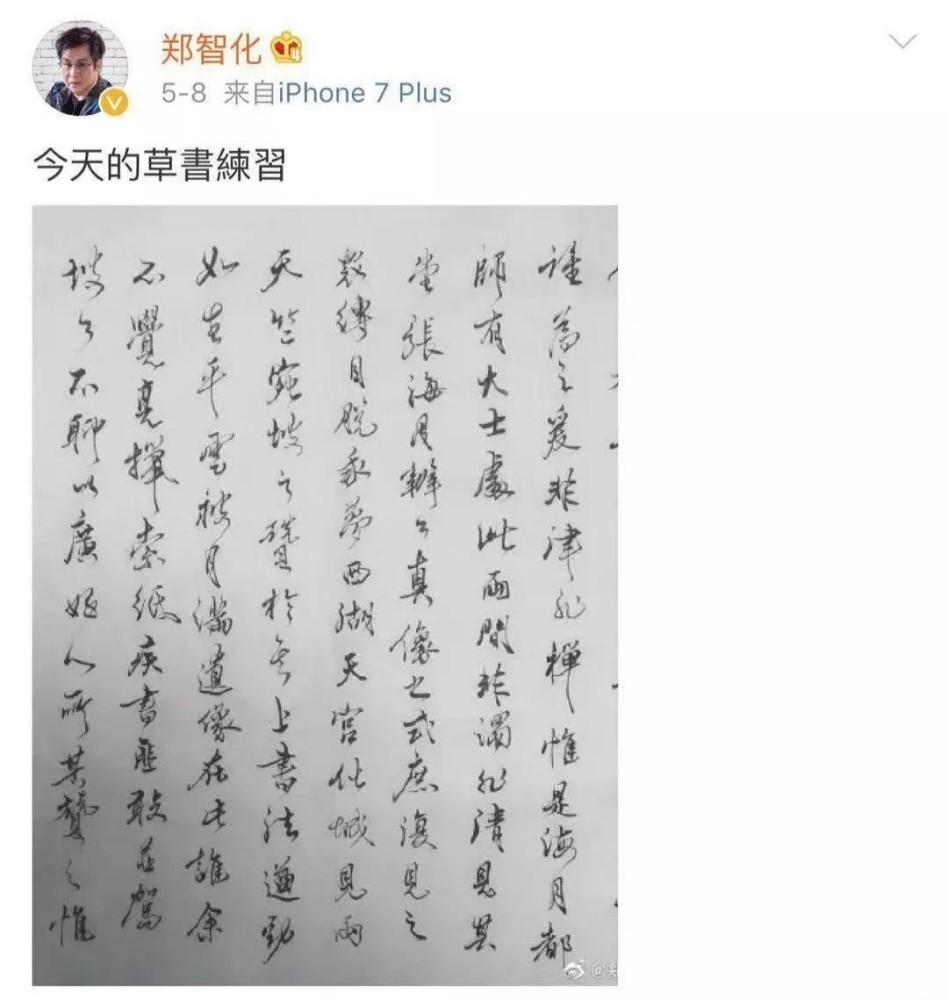 郑智化
5-8 来自iPhone 7 Plus
今天的草書練習
誰為之爰非律非禪惟是海月都
師有大士處此兩間非濁非清見其
堂張海月辯公真像之式庶復見之
眾縛自脫我夢西湖天宮化城見兩
天竺宛坡之贊於其上書法遒勁
如生平雲披月滿遺像在此誰余
不覺見獵索紙疾書匪敢並駕
坡公不聊以廣人所其贊之惟